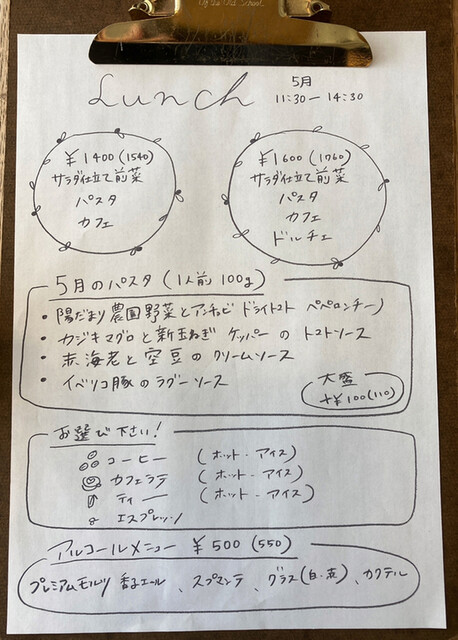 Of the Old School
Lunch
5月
11:30－14:30
¥1400(1540)
サラダ仕立て前菜
パスタ
カフェ
¥1600(1760)
サラダ仕立て前菜
パスタ
カフェ
ドルチェ
5月のパスタ(1人前100g)
・陽だまり農園野菜とアンチョビ ドライトマト ペペロンチーノ
・カジキマグロと新玉ねぎ ケッパーの トマトソース
・赤海老と空豆のクリームソース
・イベリコ豚のラグーソース
大盛
+¥100(110)
お選び下さい!
コーヒー (ホット・アイス)
カフェラテ (ホット・アイス)
ティー (ホット・アイス)
エスプレッソ
アルコールメニュー ¥500(550)
プレミアムモルツ 香るエール、スプマンテ、グラス(白・赤)、カクテル